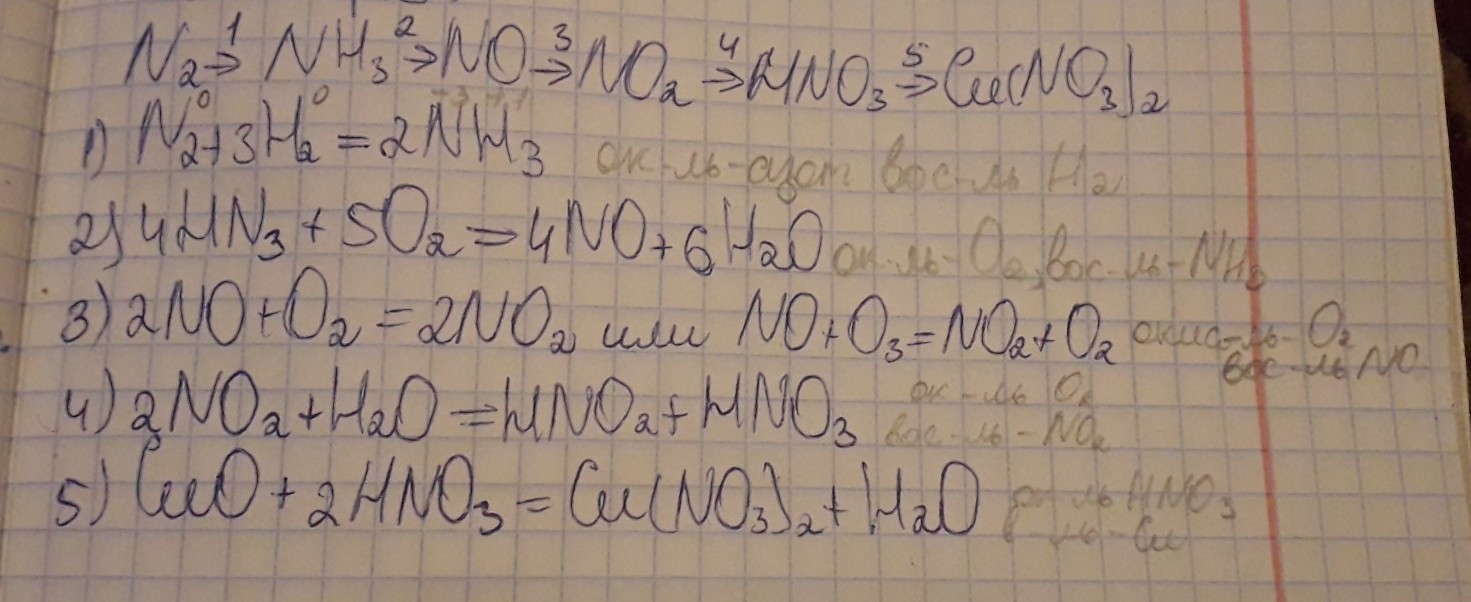 N₂ →¹ NH₃ →² NO →³ NO₂ →⁴ HNO₃ →⁵ Cu(NO₃)₂
1) N₂⁰ + 3H₂⁰ = 2N⁻³H₃⁺¹ ок-ль-азот вос-ль H₂
2) 4HN₃ + 5O₂ = 4NO + 6H₂O ок-ль-O₂, вос-ль-NH₃
3) 2NO + O₂ = 2NO₂ или NO + O₃ = NO₂ + O₂ окис-ль-O₂
вос-ль NO
4) 2NO₂ + H₂O = HNO₂ + HNO₃ ок-ль O₂
вос-ль-NO₂
5) CuO + 2HNO₃ = Cu(NO₃)₂ + H₂O ок-ль HNO₃
в-ль-Cu